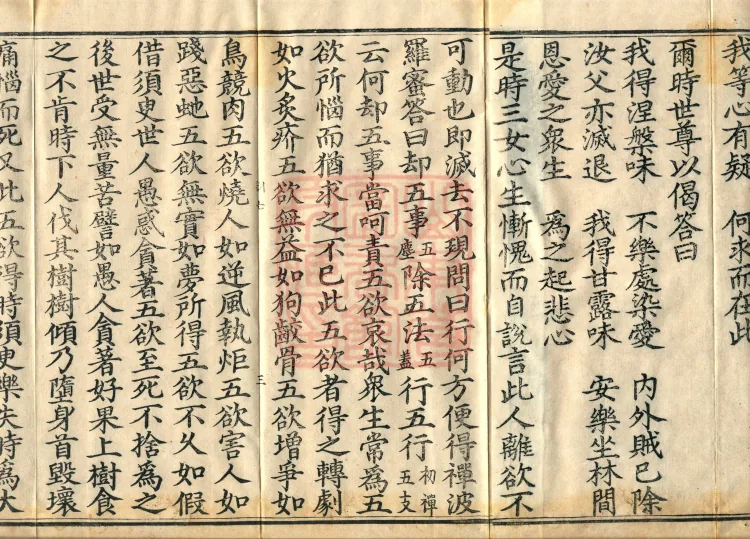 我等心有疑　何求而在此
爾時世尊以偈答曰
我得涅槃味　不樂處染愛　內外賊已除
汝父亦滅退　我得甘露味　安樂坐林間
恩愛之衆生　爲之起悲心
是時三女心生慚愧而自說言此人離欲不
可動也即滅去不現問曰行何方便得禪波
羅蜜答曰却五事五塵除五法五蓋行五行初禪五支
云何却五事當呵責五欲哀哉衆生常爲五
欲所惱而猶求之不已此五欲者得之轉劇
如火炙疥五欲無益如狗齩骨五欲增爭如
三
鳥競肉五欲燒人如逆風執炬五欲害人如
踐惡虵五欲無實如夢所得五欲不久如假
借須臾世人愚惑貪著五欲至死不捨爲之
後世受無量苦譬如愚人貪著好果上樹食
之不肯時下人伐其樹樹傾乃墮身首毀壞
痛惱而死又此五欲得時須臾樂失時爲大